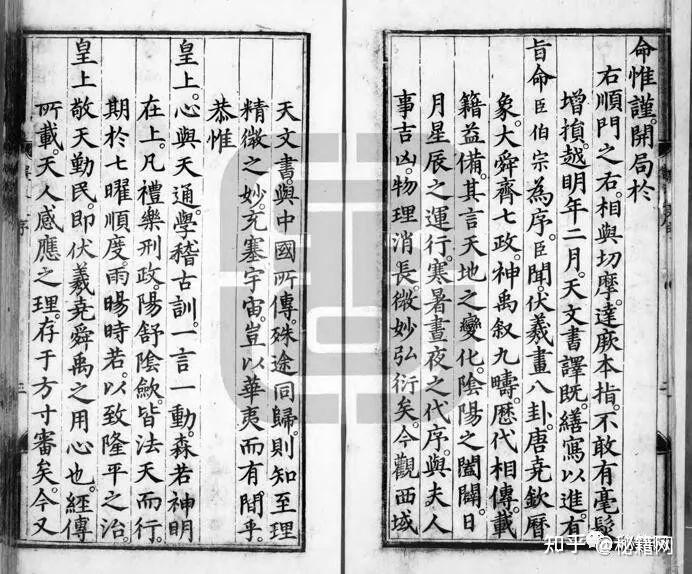 命惟謹。開局於
右順門之右。相與切摩。達厥本指。不敢有毫髮
增損。越明年二月。天文書譯既。繕寫以進。有
旨命臣伯宗為序。臣聞。伏羲畫八卦。唐堯欽曆
象。大舜齊七政。神禹叙九疇。歷代相傳。載
籍益備。其言天地之變化。陰陽之闔闢。日
月星辰之運行。寒暑晝夜之代序。與夫人
事吉凶。物理消長。微妙弘衍矣。今觀西域
天文書。與中國所傳。殊途同歸。則知至理
精微之妙。充塞宇宙。豈以華夷而有間乎。
恭惟
皇上。心與天通。學稽古訓。一言一動。森若神明
在上。凡禮樂刑政。陽舒陰歛。皆法天而行。
期於七曜順度。雨暘時若。以致隆平之治。
皇上敬天勤民。即伏羲堯舜禹之用心也。經傳
所載。天人感應之理。存于方寸審矣。今又
序
三
二
知乎 @秘籍网